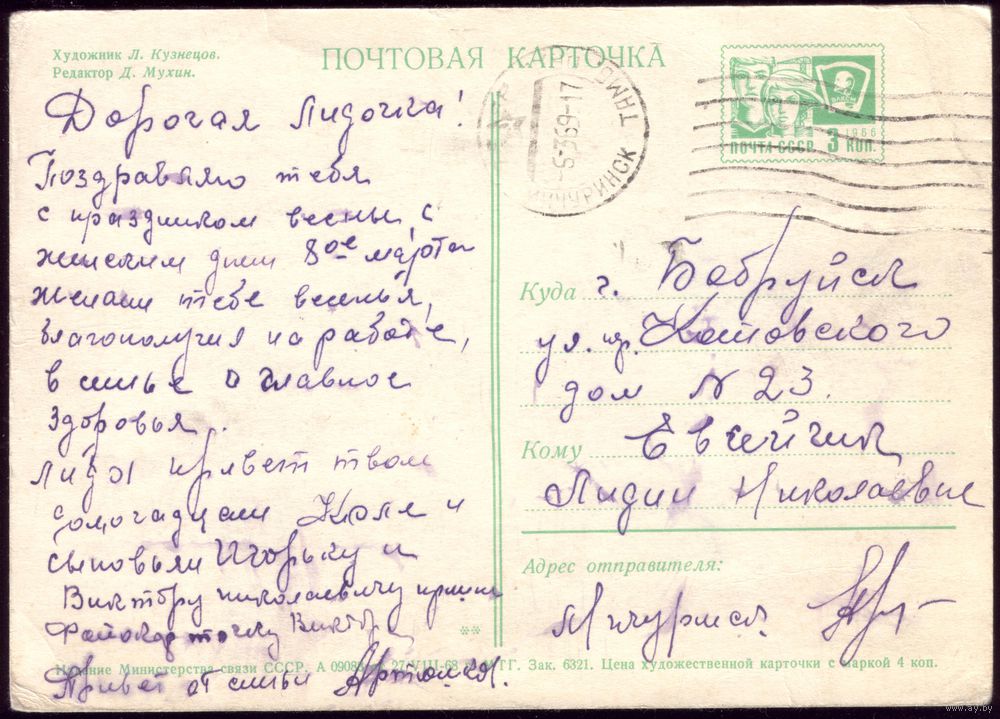 Художник Л. Кузнецов.
Редактор Д. Мухин.
ПОЧТОВАЯ КАРТОЧКА
ВЛКСМ
1966
ПО�чТА СССР 3 КОП.
МИЧУРИНСК ТАМБ
-5-369-17
Дорогая Лидочка!
Поздравляю тебя
с праздником весны, с
женским днем 8ое марта
желаю тебе веселья,
благополучия на работе,
в семье и главное
здоровья.
Лида привет твоим
домочадцам Коле и
сыновьям Игорьку и
Виктору Николаевичу
Виктору
Привет от семьи
Куда г. Бобруйск
ул. Котовского
дом N 23.
Кому
Лидии Николаевне
Адрес отправителя:
Мичуринск
**
Издание Министерства связи СССР. А 0908 27/VIII-68 г. МТГ. Зак. 6321. Цена художественной карточки с маркой 4 коп.
www.ay.by